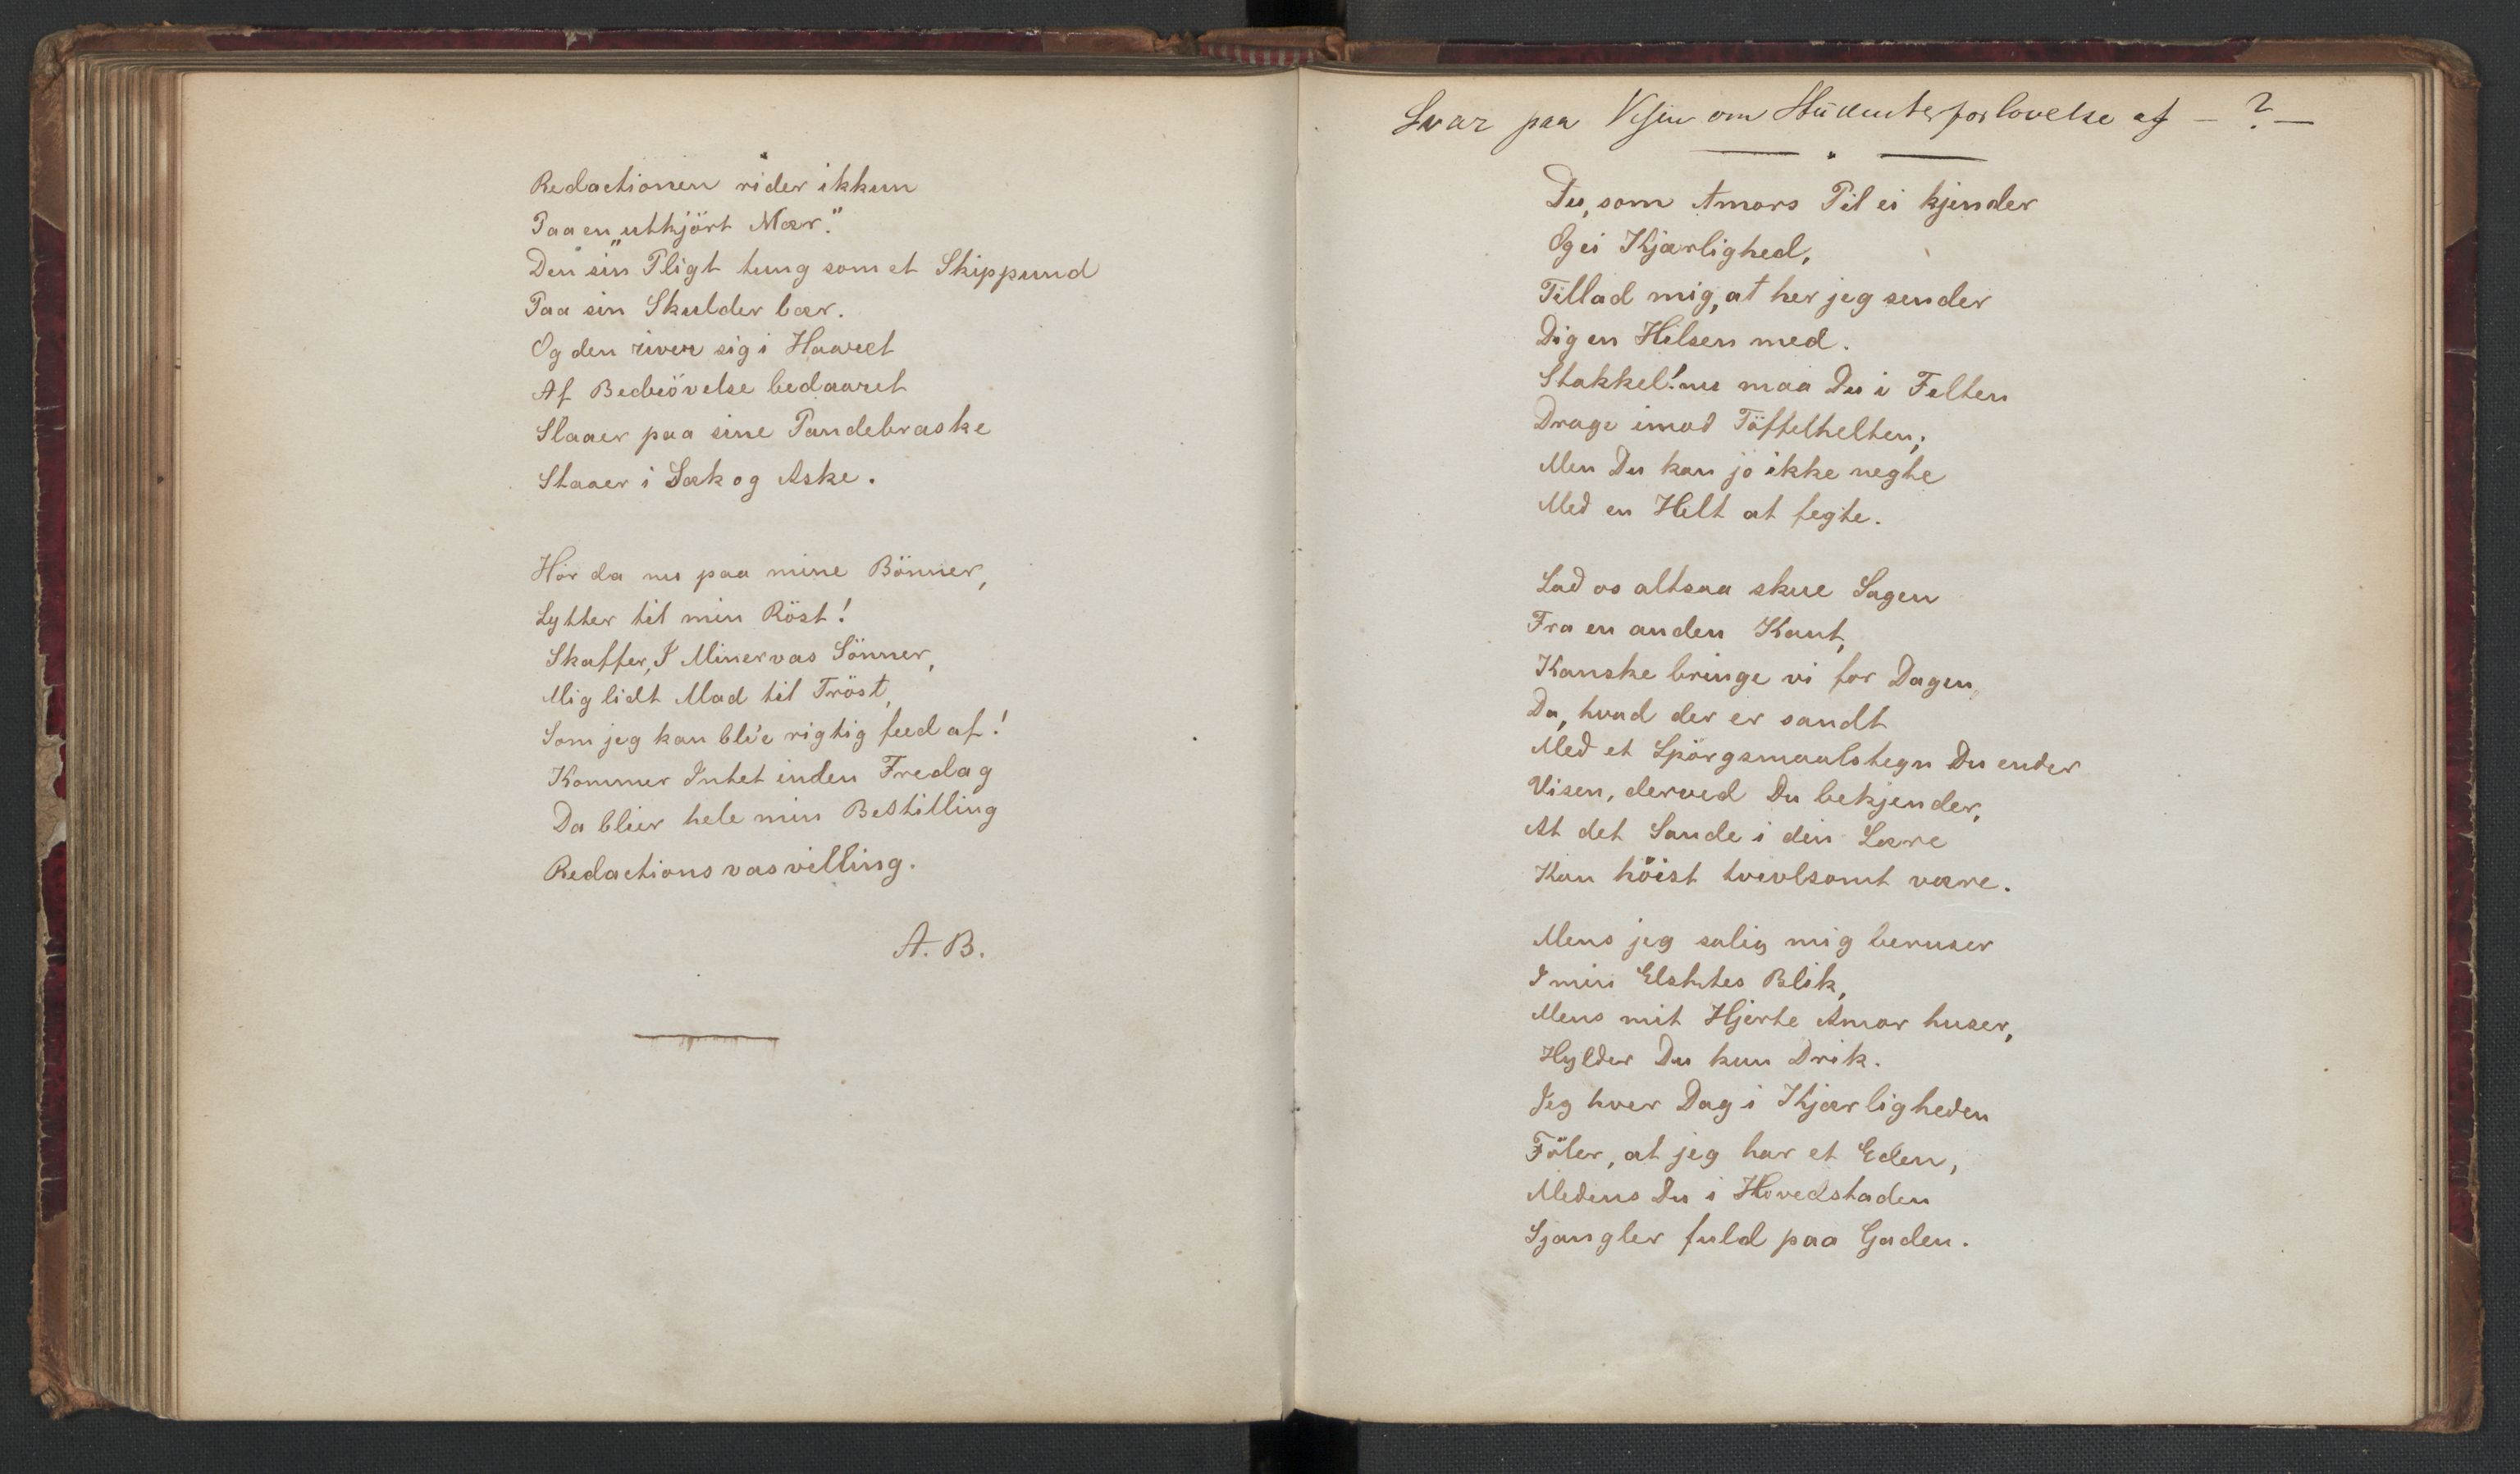 Redactionen rider ikkun
Paa en "utkjört Mær."
Den sin Pligt tung som et Skippund
Paa sin Skulder bær.
Og den river sig i Haaret
Af Bedrövelse bedaaret
Slaaer paa sine Pandebraske
Staaer i Sæk og Aske.
Hör da nu paa mine Bönner,
Lytter til min Röst!
Skaffer, I Minervas Sönner,
Mig lidt Mad til Tröst,
Som jeg kan bli'e rigtig feed af!
Kommer Intet inden Fredag
Da blier hele min Bestilling
Redactionsvasvilling.
A. B.
Svar paa Visen om Studenterforlovelse af – ? –
Du, som Amors Pil ei kjender
Og ei Kjærlighed,
Tillad mig, at her jeg sender
Dig en Hilsen med.
Stakkel! nu maa Du i Felten
Drage imod Töffelhelten;
Men Du kan jo ikke negte
Med en Helt at fegte.
Lad os altsaa skue Sagen
Fra en anden Kant,
Kanske bringe vi for Dagen,
Da, hvad der er sandt
Med et Spörgsmaalstegn Du ender
Visen, derved Du bekjender,
At det Sande i din Lære
Kan höist tvivlsomt være.
Mens jeg salig mig beruser
I min Elsktes Blik,
Mens mit Hjerte Amor huser,
Hylder Du kun Drik.
Jeg hver Dag i Kjærligheden
Föler, at jeg har et Eden,
Medens Du i Hovedstaden
Sjangler fuld paa Gaden.